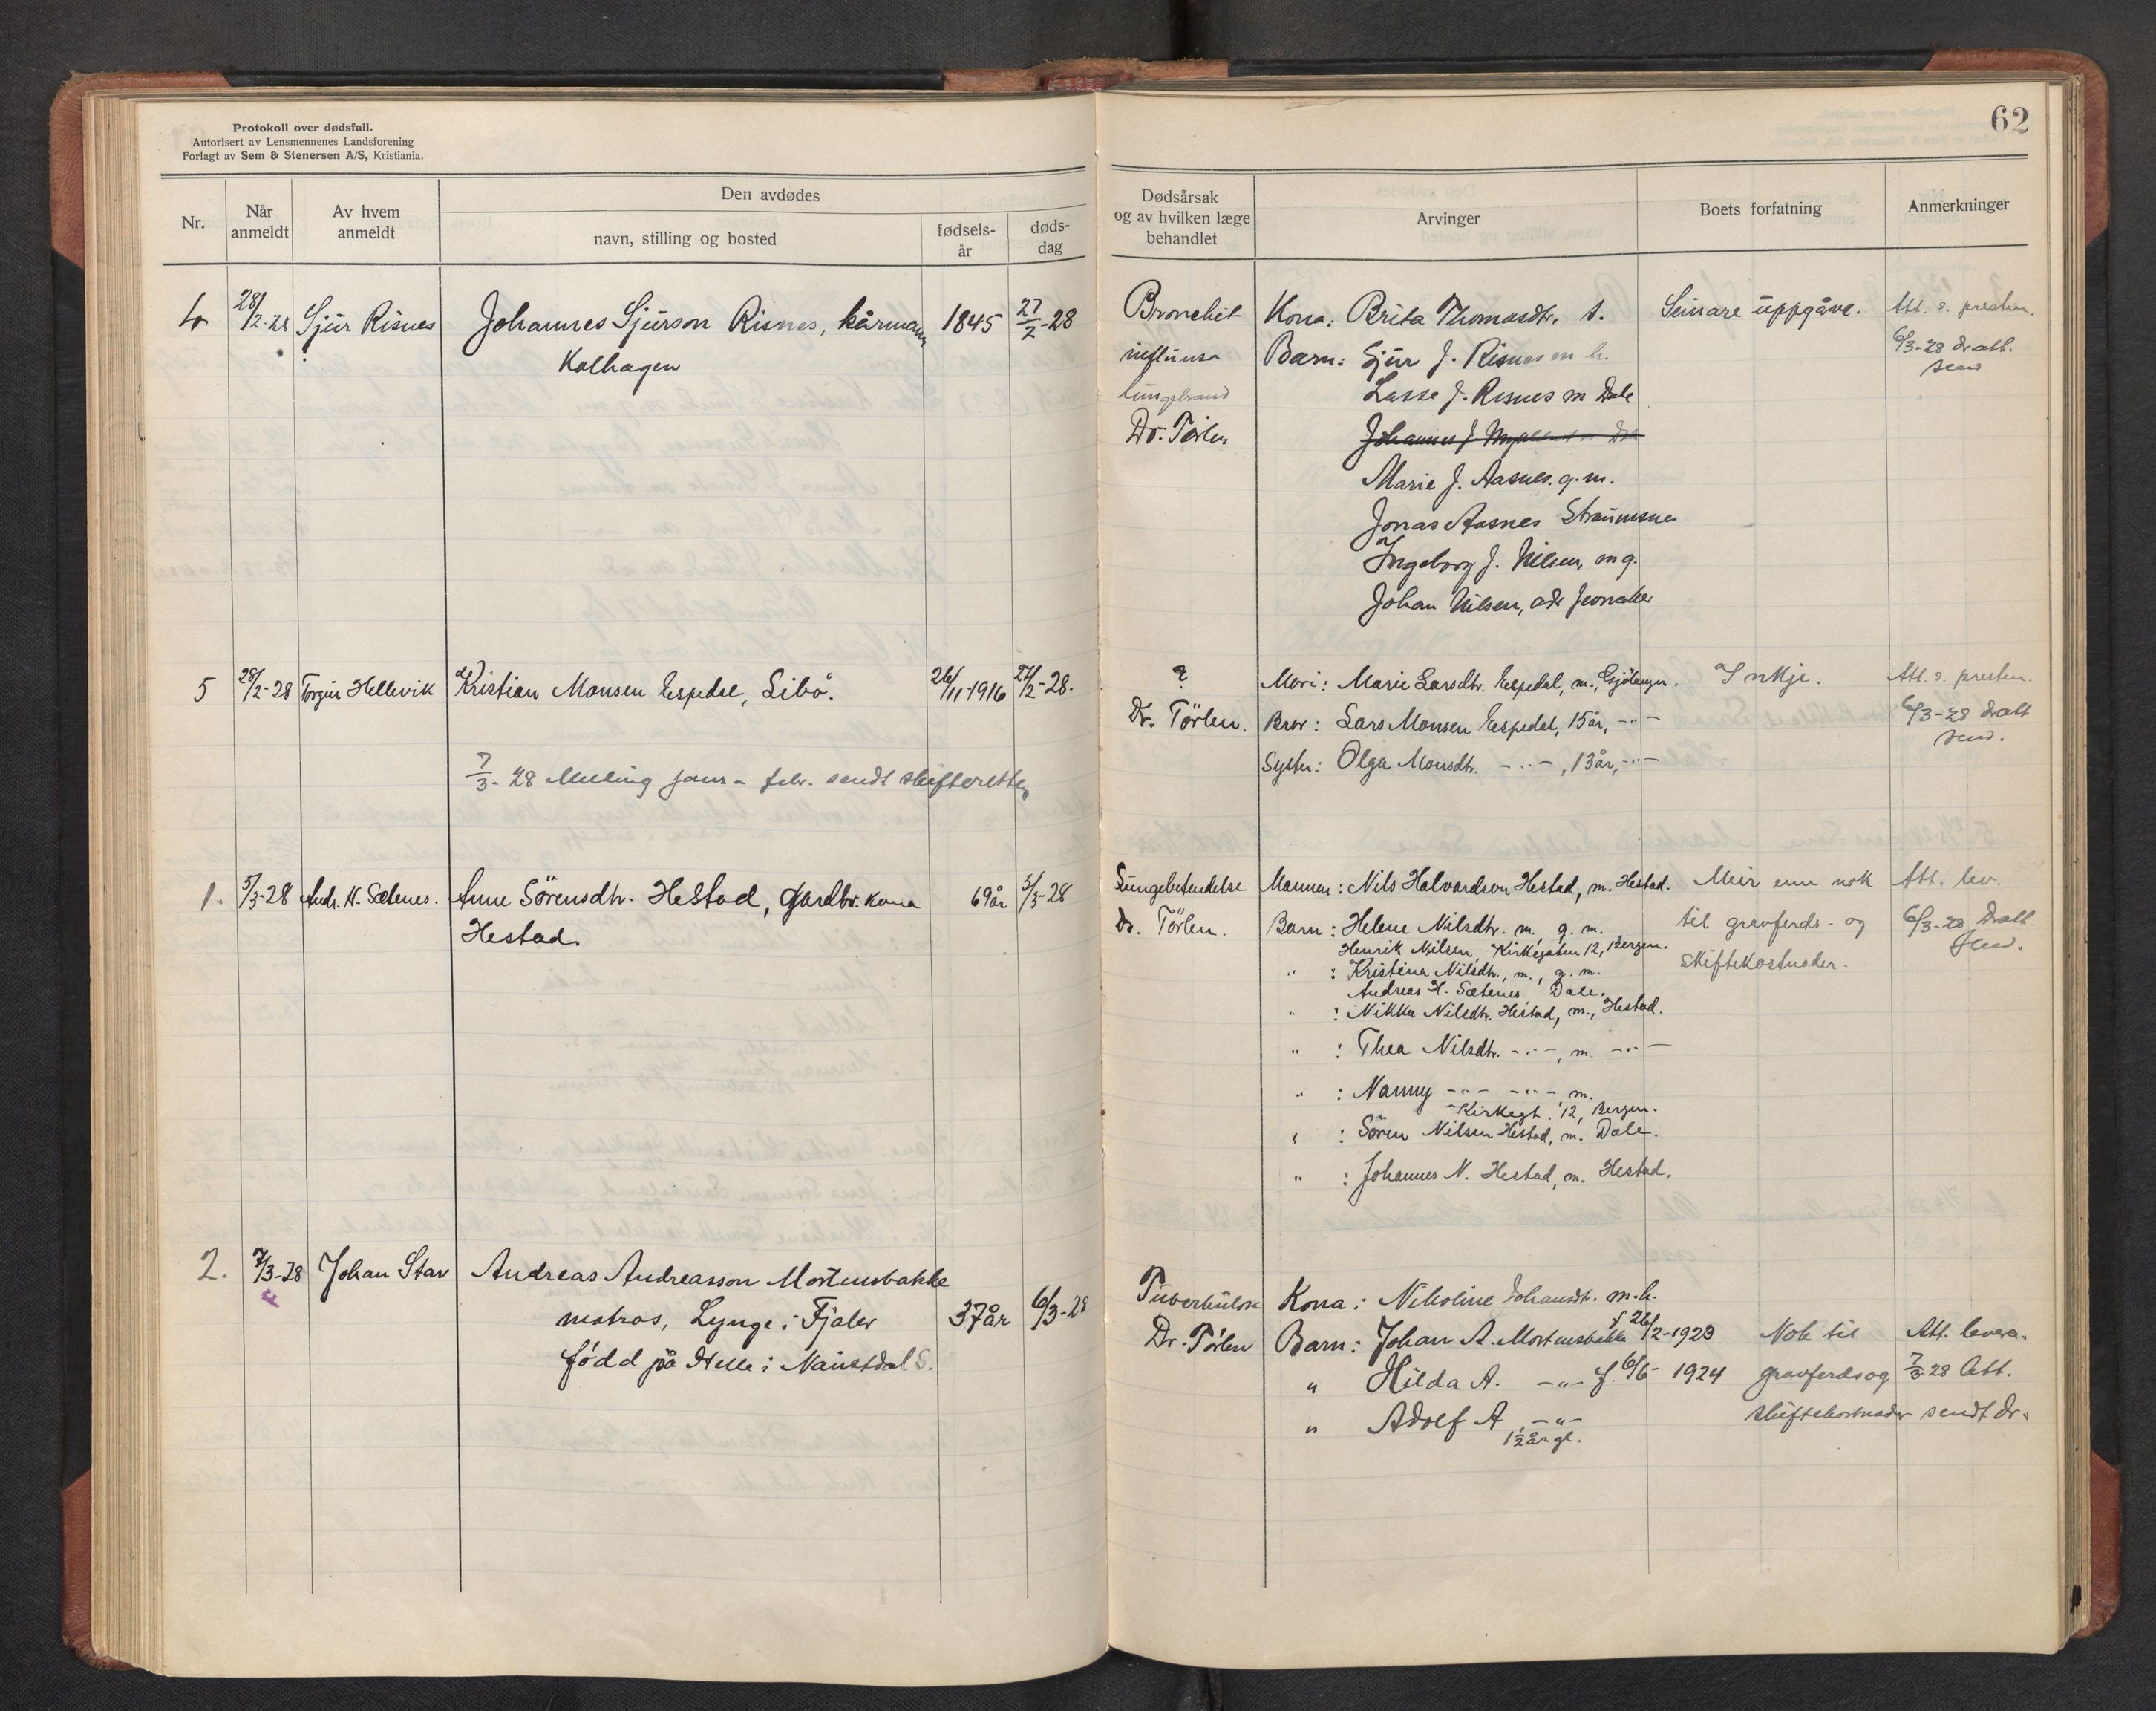 Protokoll over dødsfall.
Autorisert av Lensmennenes Landsforening
Forlagt av Sem & Stenersen A/S, Kristiania.
Nr.
Når anmeldt
Av hvem anmeldt
Den avdødes
navn, stilling og bosted
fødsels-
år
døds-
dag
4 28/2-28 Sjur Risnes Johannes Sjurson Risnes, kårmann 1845 27/2-28
Kolhagen
5 28/2-28 Torgür Hellevik Kristian Monsen Espedal, Libö. 26/11-1916 27/2-28.
7/3-28 Melling janr- febr. sendt skifteretten
1. 5/3-28 Andr. H. Sætenes. Anne Sörensdtr. Hestad, gardbr. kona 69 år 3/3-28
Hestad.
2. 7/3-28 Johan Stav Andreas Andreasson Mortensbakke
matros, Lynge i Fjaler 37 år 6/3-28
född på Helle i Naustdal S.
62
Dødsårsak
og av hvilken læge
behandlet
Arvinger
Boets forfatning
Anmerkninger
Bronchit Kona: Brita Thomasdtr. s. Seinare uppgåve. Att. s. presten.
influensa Barn: Sjur J. Risnes m h. 6/3-28 dr att.
lungebrand Lasse J. Risnes m Dale send
Dr. Törlen Johannes J.
Marie J. Aasnes. g. m.
Jonas Aasnes Straumsnes
Ingeborg J. Nilsen, m g.
Johan Nilsen, adr
? Mori: Marie Larsdtr. Espedal, m., Gjölanger. Inkje. Att. s. presten.
Dr. Törlen. Bror: Lars Monsen Espedal, 15 år, -"- 6/3-28 dratt
send.
Syster: Olga Monsdtr. -"-, 13 år, -"-
Lungebetendelse Mannen: Nils Halvardson Hestad, m. Hestad. Meir enn nok Att. lev.
Dr. Törlen. Barn: Helene Nilsdtr. m, g. m. til gravferds- og 6/3-28 Dratt.
Henrik Nilsen, Kirkegaten 12, Bergen. send.
" : Kristina Nilsdtr., m., g. m. skiftekostnader.
Andreas H. Sætenes Dale.
" : Nikka Nilsdtr. Hestad, m., Hestad.
" : Thea Nilsdtr. -"-, m. -"-
" : Nanny -"- -"- m.
Kirkegt. 12, Bergen.
" : Sören Nilsen Hestad, m. Dale.
" : Johannes N. Hestad, m. Hestad.
Tuberkulose Kona: Nikoline Johansdt. m. h.
Dr. Törlen Barn: Johan A. Mortensbakke f 26/2-1923 Nok til Att. levera.
" Hilda A. -"- f. 6/6- 1924 gravferds og 7/3-28 Att.
" Adolf A -"- skiftekostnader sendt dr.
1 1/2 år gl.